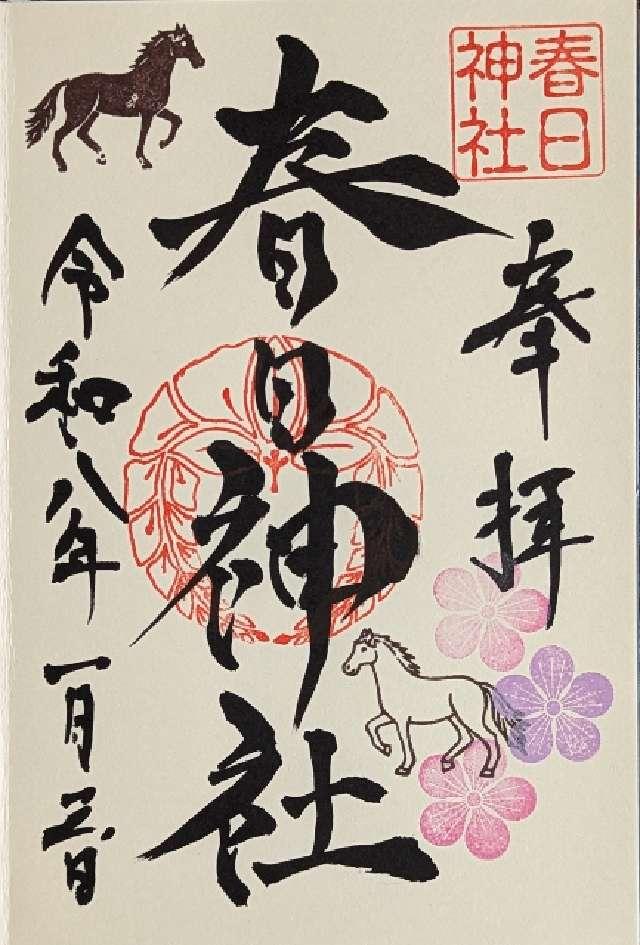 春日神社
奉拝
春日神社
令和八年 一月三日